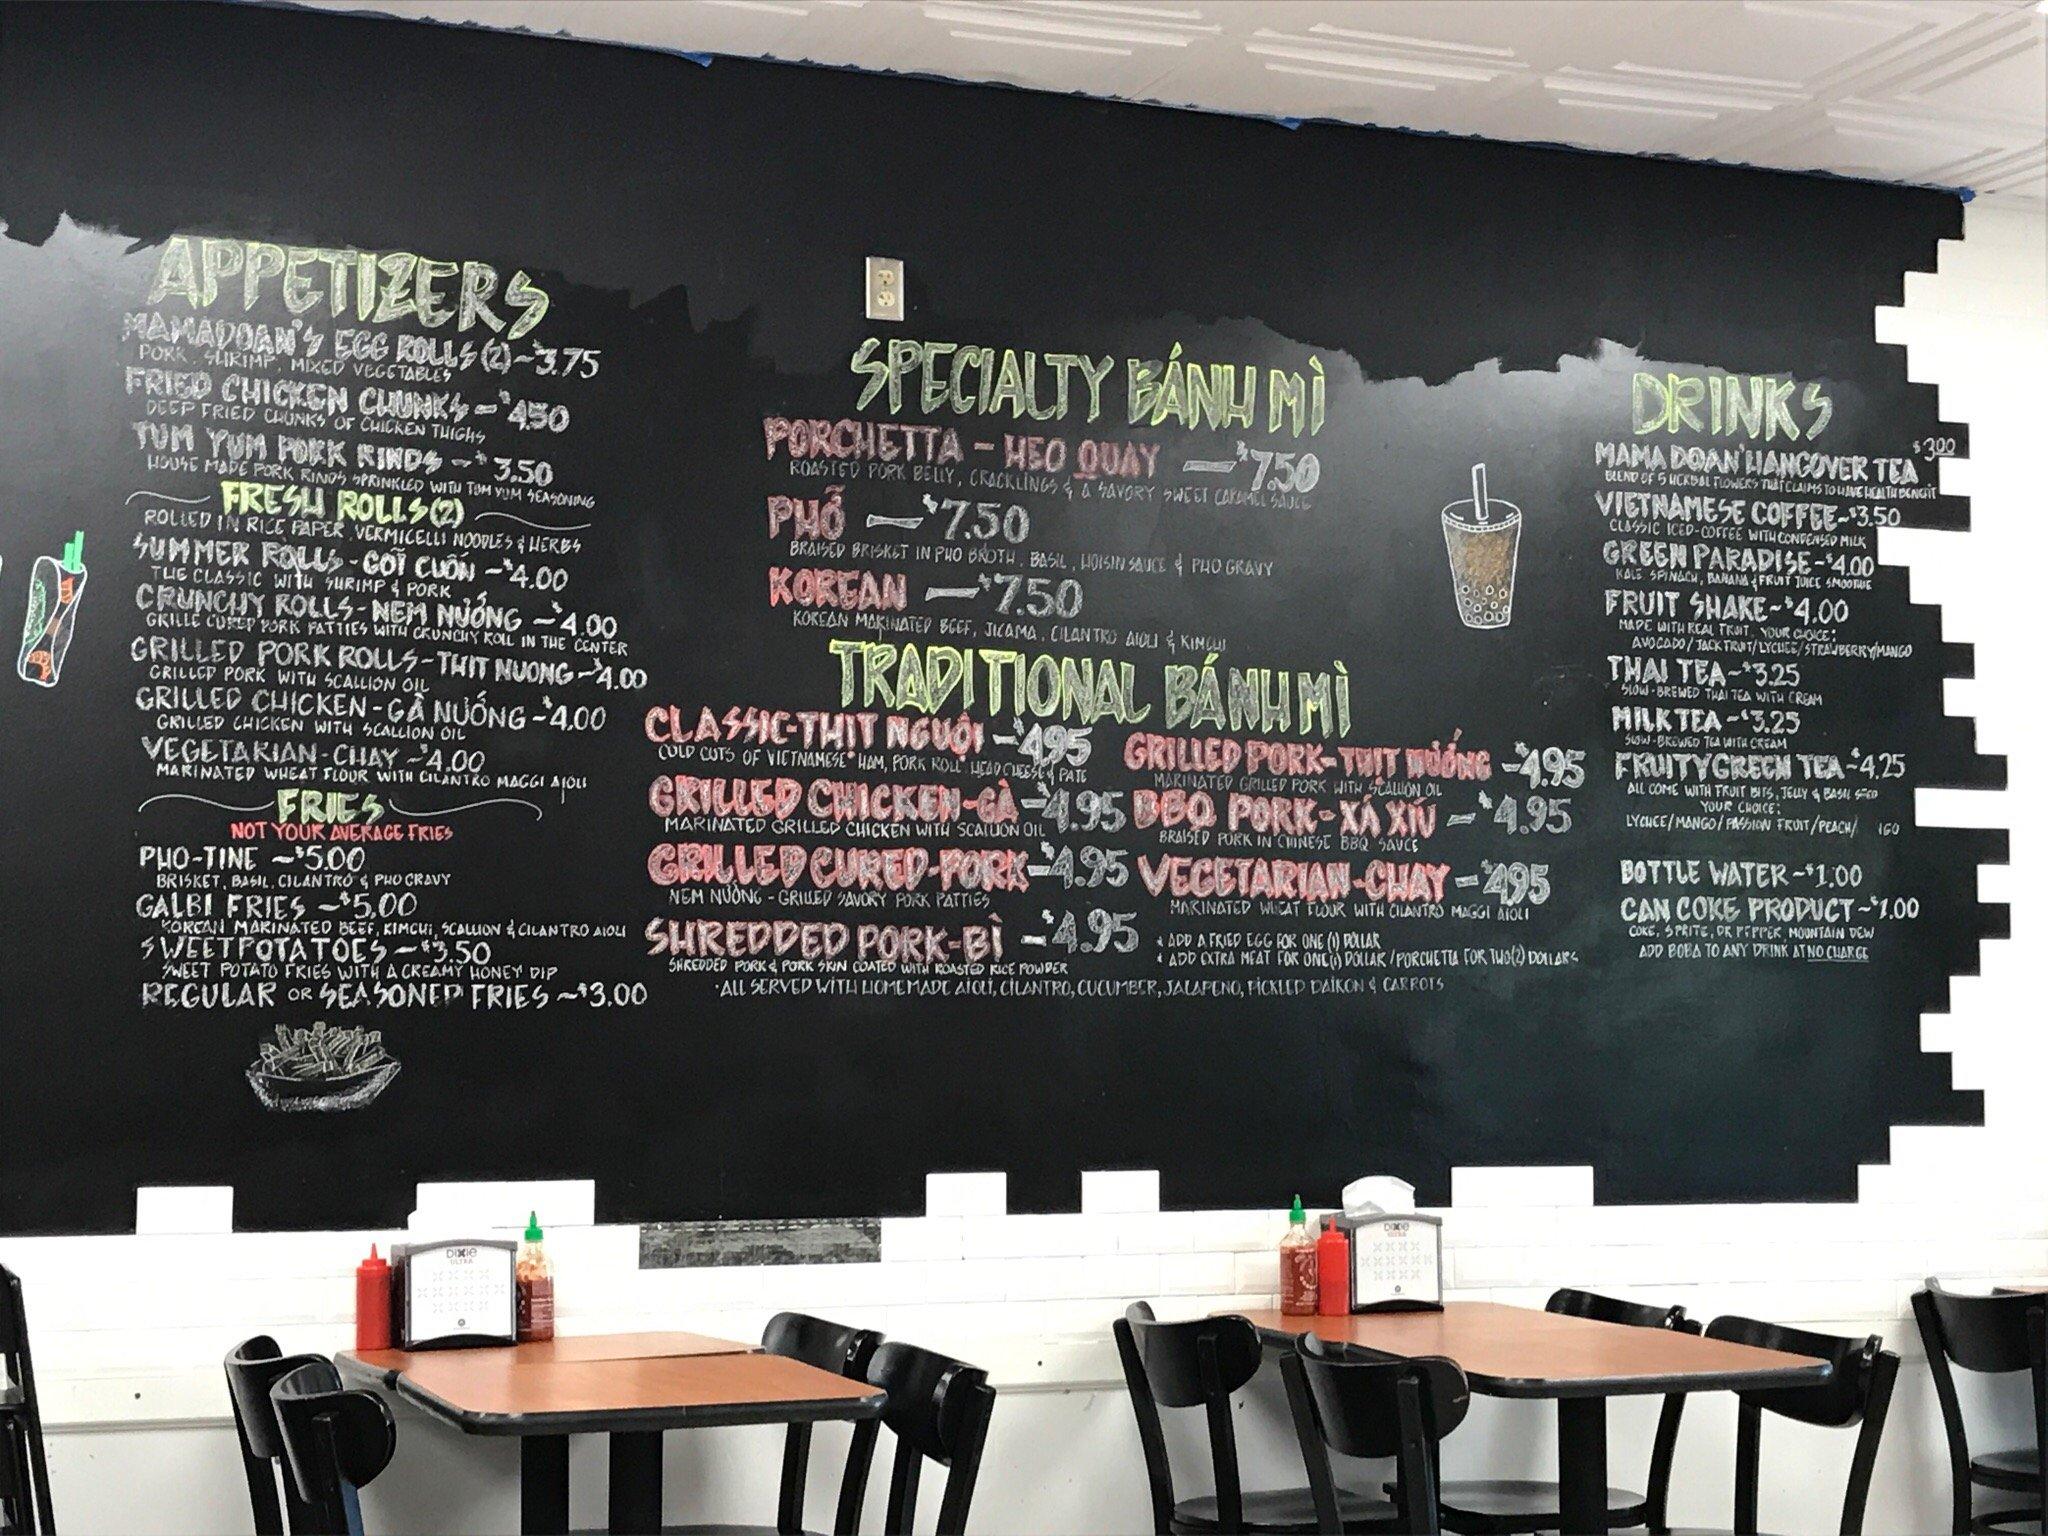 APPETIZERS
MAMADOAN'S EGG ROLLS (2) ~ $3.75
PORK, SHRIMP, MIXED VEGETABLES
FRIED CHICKEN CHUNKS - $4.50
DEEP FRIED CHUNKS OF CHICKEN THIGHS
TUM YUM PORK RINDS ~ $3.50
HOUSE MADE PORK RINDS SPRINKLED WITH TUM YUM SEASONING
FRESH ROLLS (2)
ROLLED IN RICE PAPER, VERMICELLI NOODLES & HERBS
SUMMER ROLLS - GỎI CUỐN ~ $4.00
THE CLASSIC WITH SHRIMP & PORK
CRUNCHY ROLLS - NEM NƯỚNG ~ $4.00
GRILLE CURED PORK PATTIES WITH CRUNCHY ROLL IN THE CENTER
GRILLED PORK ROLLS - THIT NUONG ~ $4.00
GRILLED PORK WITH SCALLION OIL
GRILLED CHICKEN - GÀ NƯỚNG ~ 4.00
GRILLED CHICKEN WITH SCALLION OIL
VEGETARIAN - CHAY ~ $4.00
MARINATED WHEAT FLOUR WITH CILANTRO MAGGI AIOLI
FRIES
NOT YOUR AVERAGE FRIES
PHO-TINE ~ $5.00
BRISKET, BASIL, CILANTRO & PHO GRAVY
GALBI FRIES ~ $5.00
KOREAN MARINATED BEEF, KIMCHI, SCALLION & CILANTRO AIOLI
SWEET POTATOES ~ $3.50
SWEET POTATO FRIES WITH A CREAMY HONEY DIP
REGULAR OR SEASONED FRIES ~ $3.00
SPECIALTY BÁNH MÌ
PORCHETTA - HEO QUAY - $7.50
ROASTED PORK BELLY, CRACKLINGS & A SAVORY SWEET CARAMEL SAUCE
PHỞ - $7.50
BRAISED BRISKET IN PHO BROTH, BASIL, HOISIN SAUCE & PHO GRAVY
KOREAN - $7.50
KOREAN MARINATED BEEF, JICAMA, CILANTRO AIOLI & KIMCHI
TRADITIONAL BÁNH MÌ
CLASSIC - THỊT NGUỘI - $4.95
COLD CUTS OF VIETNAMESE HAM, PORK ROLL, HEAD CHEESE & PATE
GRILLED CHICKEN - GÀ - $4.95
MARINATED GRILLED CHICKEN WITH SCALLION OIL
GRILLED CURED - PORK - $4.95
NEM NƯỚNG - GRILLED SAVORY PORK PATTIES
SHREDDED PORK - BÌ - $4.95
SHREDDED PORK & PORK SKIN COATED WITH ROASTED RICE POWDER
GRILLED PORK - THỊT NƯỚNG - $4.95
MARINATED GRILLED PORK WITH SCALLION OIL
BBQ PORK - XÁ XÍU - $4.95
BRAISED PORK IN CHINESE BBQ SAUCE
VEGETARIAN - CHAY - $4.95
MARINATED WHEAT FLOUR WITH CILANTRO MAGGI AIOLI
* ADD A FRIED EGG FOR ONE (1) DOLLAR
* ADD EXTRA MEAT FOR ONE (1) DOLLAR / PORCHETTA FOR TWO (2) DOLLARS
*ALL SERVED WITH HOMEMADE AIOLI, CILANTRO, CUCUMBER, JALAPENO, PICKLED DAIKON & CARROTS
DRINKS
MAMA DOAN' HANGOVER TEA $3.00
BLEND OF 5 HERBAL FLOWERS THAT CLAIMS TO HAVE HEALTH BENEFIT
VIETNAMESE COFFEE ~ $3.50
CLASSIC ICED-COFFEE WITH CONDENSED MILK
GREEN PARADISE ~ $4.00
KALE, SPINACH, BANANA & FRUIT JUICE SMOOTHIE
FRUIT SHAKE ~ $4.00
MADE WITH REAL FRUIT. YOUR CHOICE:
AVOCADO / JACKFRUIT / LYCHEE / STRAWBERRY / MANGO
THAI TEA ~ $3.25
SLOW-BREWED THAI TEA WITH CREAM
MILK TEA ~ $3.25
SLOW-BREWED TEA WITH CREAM
FRUITY GREEN TEA ~ $4.25
ALL COME WITH FRUIT BITS, JELLY & BASIL SEED
YOUR CHOICE:
LYCHEE / MANGO / PASSION FRUIT / PEACH /
BOTTLE WATER ~ $1.00
CAN COKE PRODUCT ~ $1.00
COKE, SPRITE, DR PEPPER, MOUNTAIN DEW
ADD BOBA TO ANY DRINK AT NO CHARGE
DIXIE
ULTRA
DIXIE
ULTRA